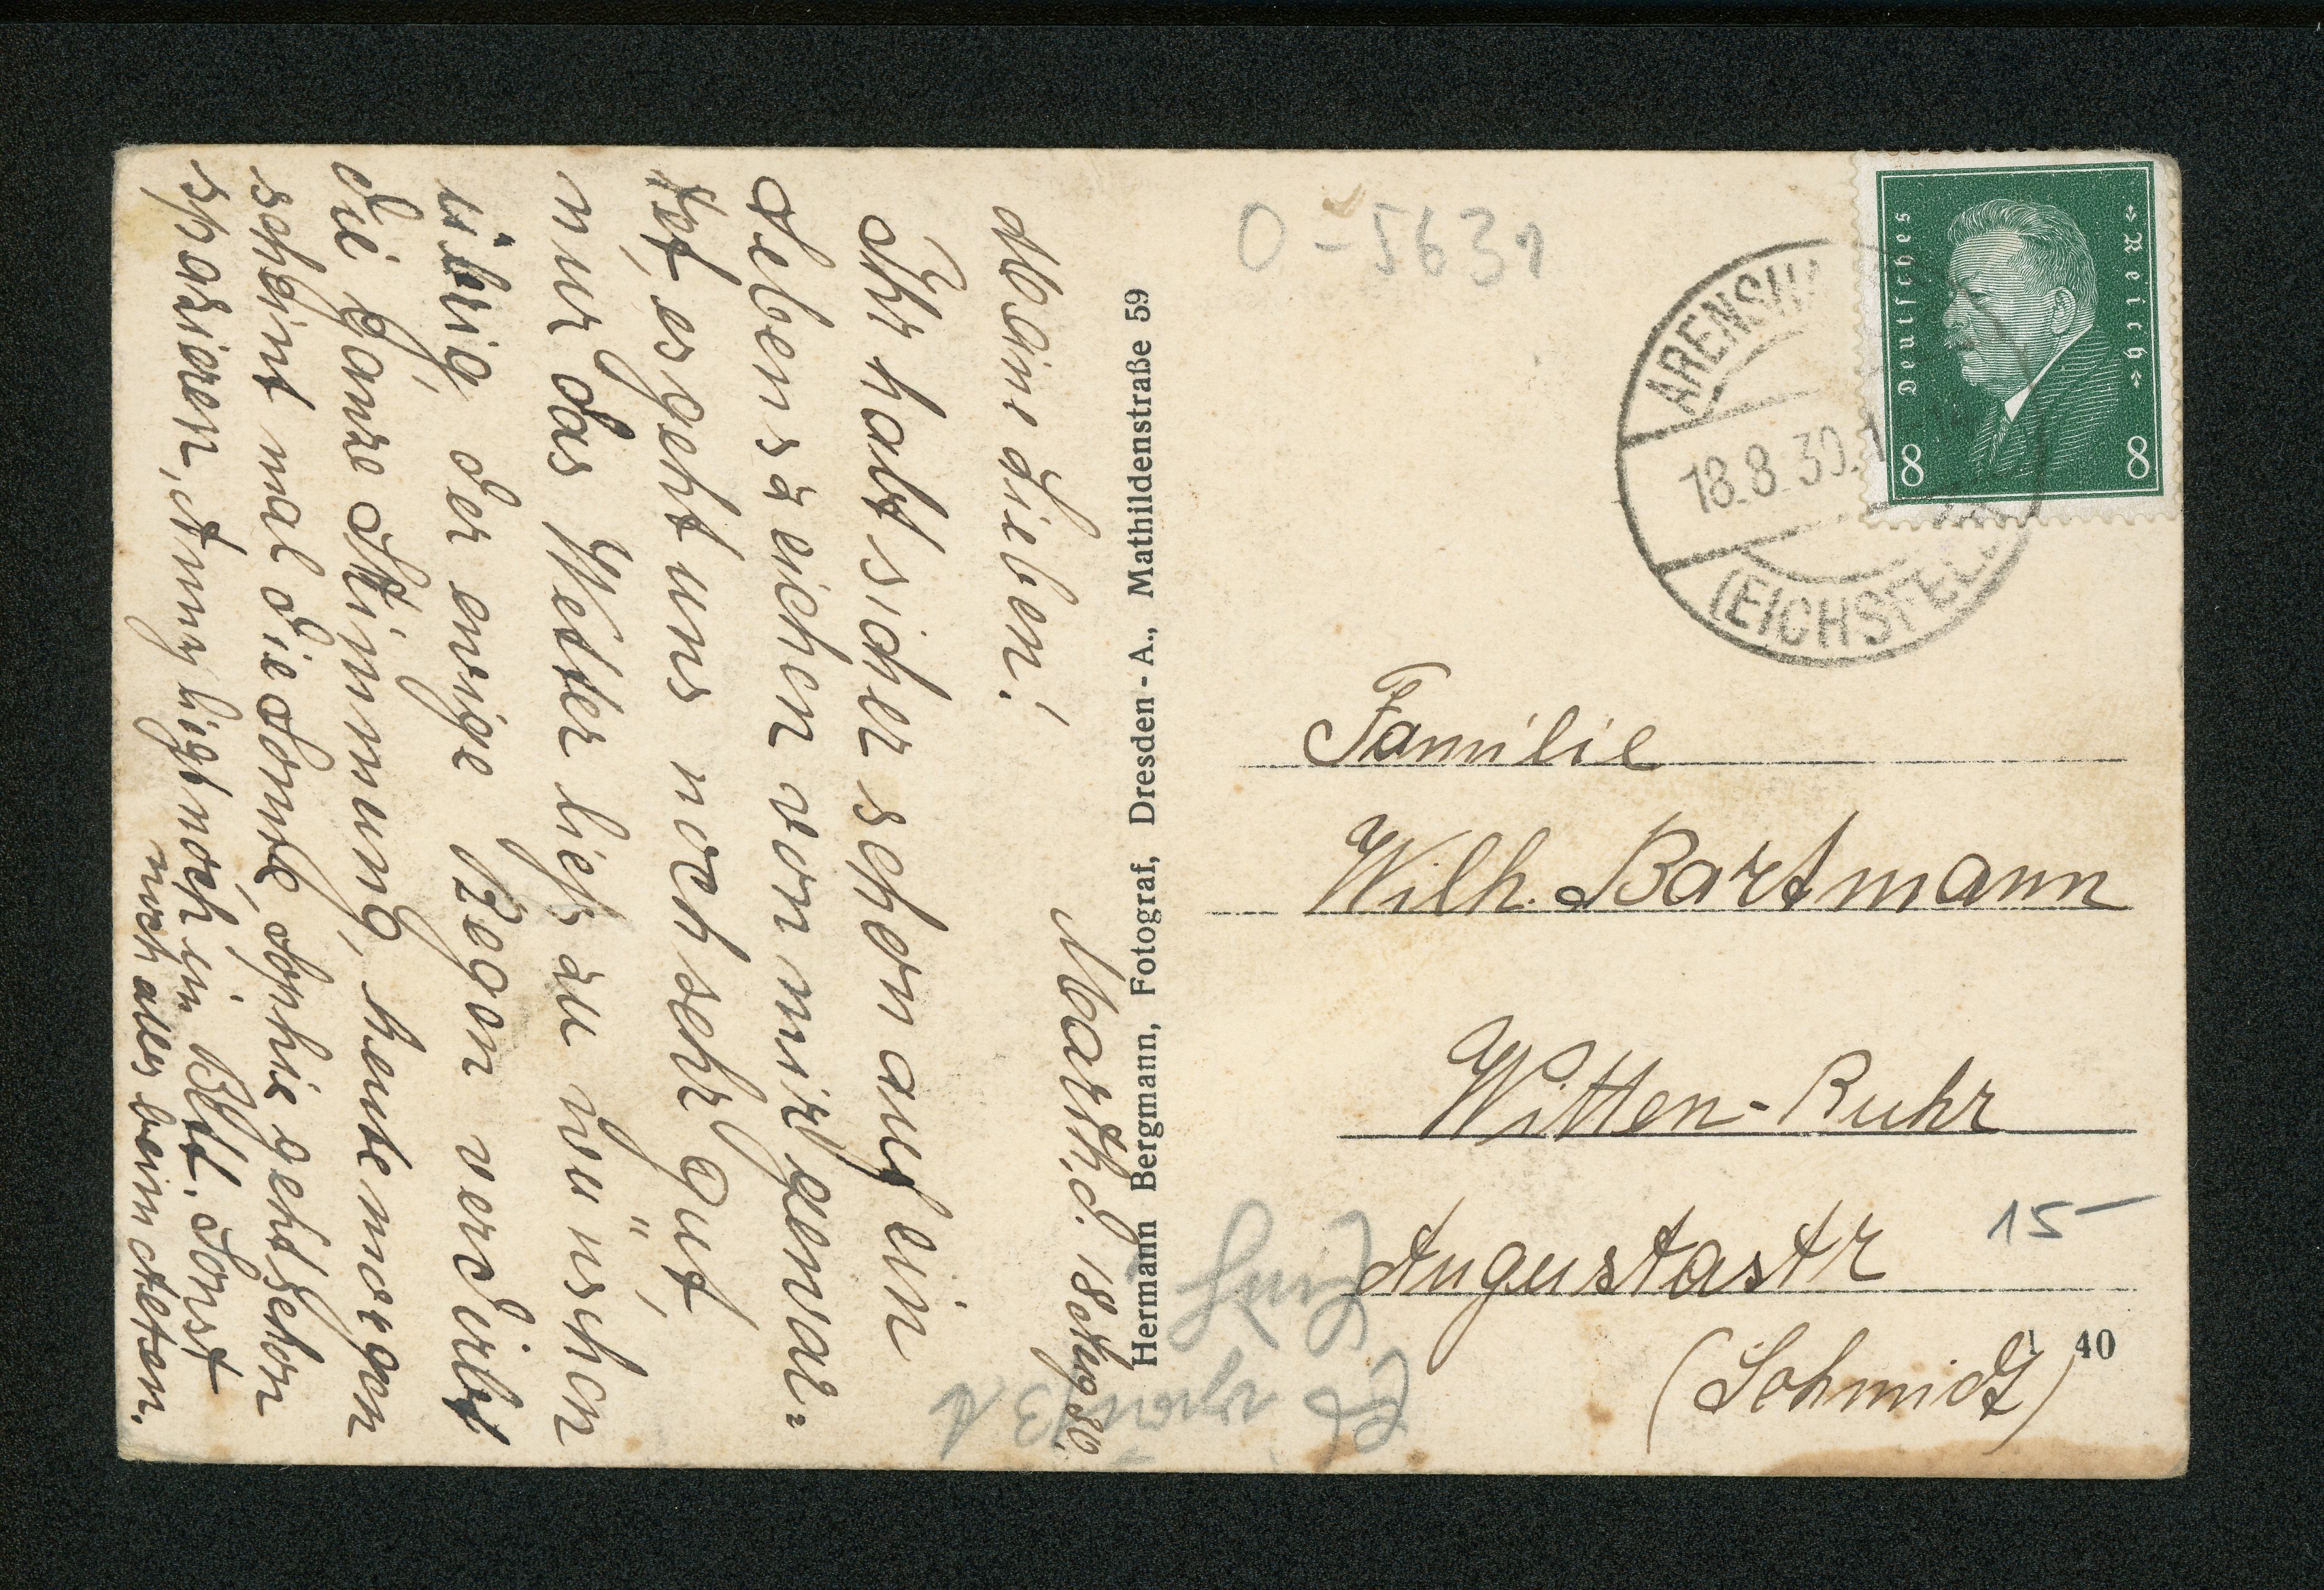 Marth, d. 18. Aug. 30.
Meine Lieben!
Ihr habt sicher schon auf ein
Lebenszeichen von mir gewar-
tet, es geht uns noch sehr gut,
nur das Wetter ließ zu wünschen
übrig, der ewige Regen verdirbt
die ganze Stimmung, heute morgen
scheint mal die Sonne, Sophie geht schon
spazieren, Anny liegt noch im Bett. Sonst
noch alles beim alten.
Hermann Bergmann, Fotograf, Dresden-A., Mathildenstraße 59
0-5631
Deutsches
»Reich«
8 8
ARENSH
18.8.30.1
(EICHSFELD
Familie
Wilh. Bartmann
Witten-Ruhr
Augustastr
(Schmidt)
15-
40